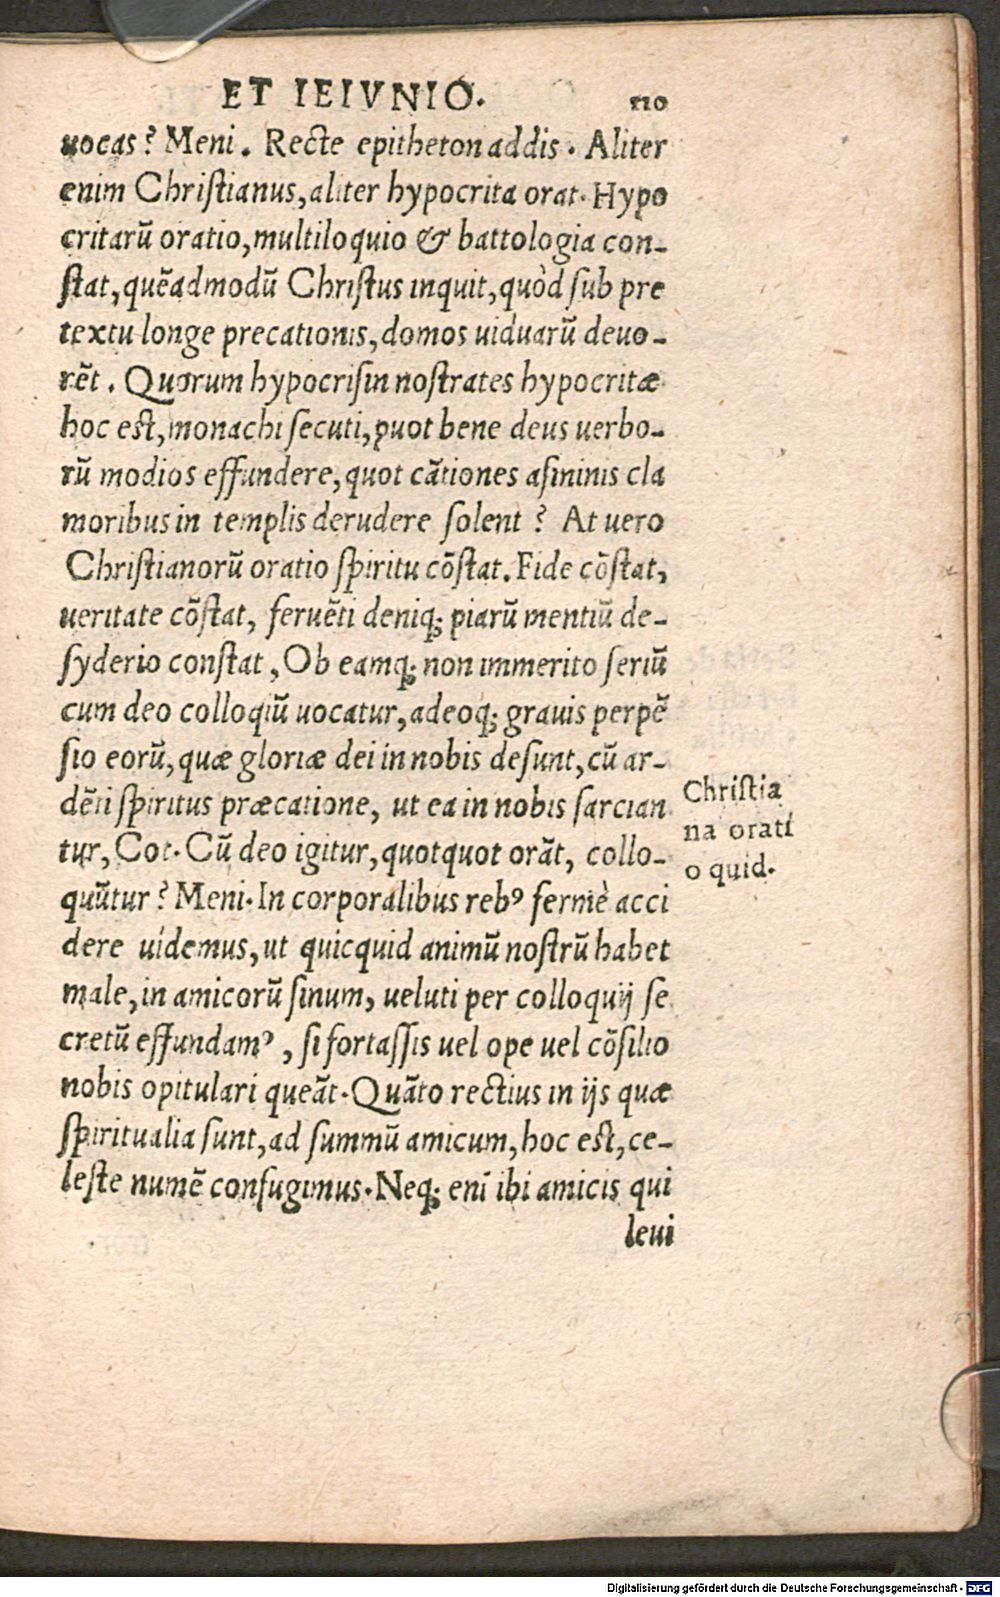 ET IEIVNIO. 110
uocas? Meni. Recte epitheton addis. Aliter
enim Christianus, aliter hypocrita orat. Hypo
critarū oratio, multiloquio & battologia con-
stat, quēadmodū Christus inquit, quòd sub pre
textu longe precationis, domos uiduarū deuo-
rēt. Quorum hypocrisin nostrates hypocritæ
hoc est, monachi secuti, puot bene deus uerbo-
rū modios effundere, quot cātiones asininis cla
moribus in templis derudere solent? At uero
Christianorū oratio spiritu cōstat. Fide cōstat,
ueritate cōstat, feruēti deniq; piarū mentiū de-
syderio constat, Ob eamq; non immerito seriū
cum deo colloqiū uocatur, adeoq; grauis perpē
sio eorū, quæ gloriæ dei in nobis desunt, cū ar-
dēti spiritus præcatione, ut ea in nobis sarcian
tur, Cot. Cū deo igitur, quotquot orāt, collo-
quūtur? Meni. In corporalibus rebꝰ fermè acci
dere uidemus, ut quicquid animū nostrū habet
male, in amicorū sinum, ueluti per colloquij se
cretū effundamꝰ, si fortassis uel ope uel cōsilio
nobis opitulari queāt. Quāto rectius in ijs quæ
spiritualia sunt, ad summū amicum, hoc est, ce-
leste numē confugimus. Neq; enī ibi amicis qui
leui
Christia
na orati
o quid.
Digitalisierung gefördert durch die Deutsche Forschungsgemeinschaft - DFG